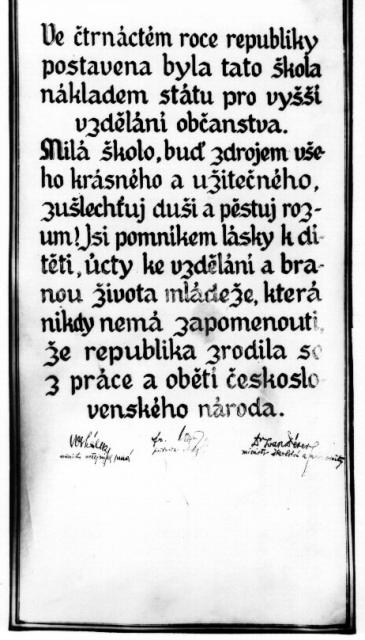 Ve čtrnáctém roce republiky
postavena byla tato škola
nákladem státu pro vyšší
vzdělání občanstva.
Milá školo, buď zdrojem vše-
ho krásného a užitečného,
zušlechťuj duši a pěstuj roz-
um! Jsi pomníkem lásky k dí-
těti, úcty ke vzdělání a bra-
nou života mládeže, která
nikdy nemá zapomenouti,
že republika zrodila se
z práce a obětí českoslo-
venského národa.
Dr Ivan Dérer
ministr